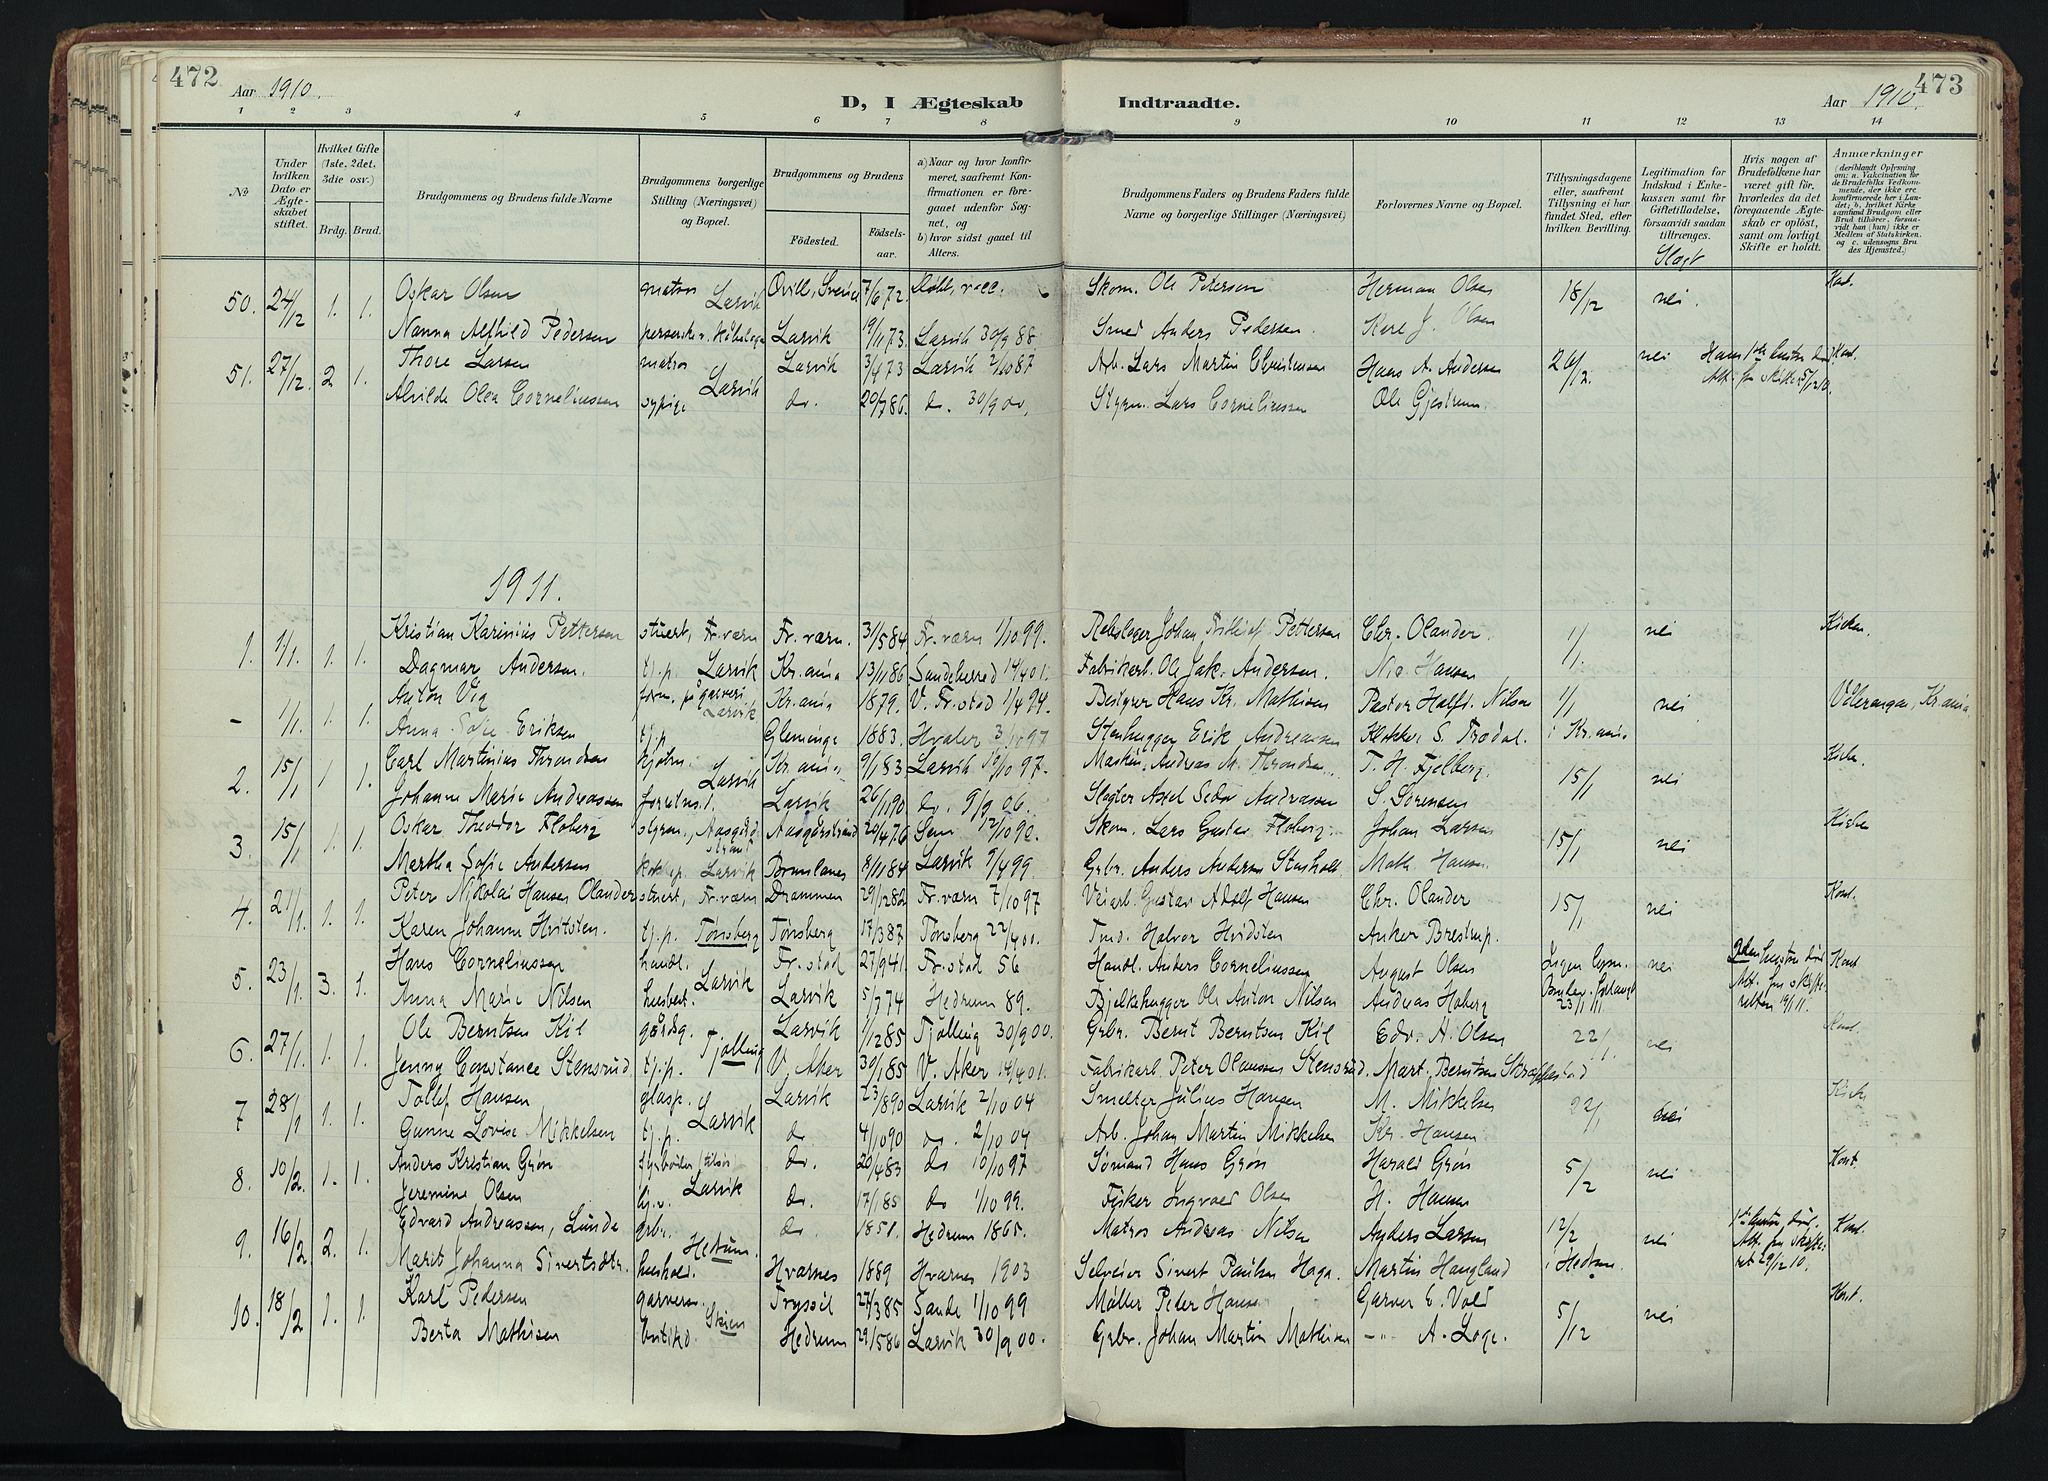 472
Aar 1910.
D, I Ægteskab Indtraadte.
Aar 1910.
473
1 2 3 4 5 6 7 8 9 10 11 12 13 14
No
Under hvilken Dato er Ægteskabet stiftet.
Hvilket Gifte (1ste, 2det, 3die osv.)
Brdg. Brud.
Brudgommens og Brudens fulde Navne
Brudgommens borgerlige Stilling (Næringsvei) og Bopæl.
Brudgommens og Brudens
Fødested.
Fødselsaar.
a) Naar og hvor konfirmeret, saafremt Konfirmationen er foregaaet udenfor Sognet, og
b) hvor sidst gaaet til Alters.
Brudgommens Faders og Brudens Faders fulde Navne og borgerlige Stillinger (Næringsvei)
Forlovernes Navne og Bopæl.
Tillysningsdagene eller, saafremt Tillysning ei har fundet Sted, efter hvilken Bevilling.
Legitimation for Indskud i Enkekassen samt for Giftetilladelse, forsaavidt saadan tiltrænges.
Slægt
Hvis nogen af Brudefolkene har været gift før, hvorledes da det foregaaende Ægteskab er opløst, samt om lovligt Skifte er holdt.
Anmærkninger (deriblandt Oplysning om: a. Vakcination for de Brudefolks Vedkommende, der ikke ere konfirmerede her i Landet; b. hvilket Kirkesamfund Brudgom eller Brud tilhører, forsaavidt han (hun) ikke er Medlem af Statskirken, og c. udensogns Brudes Hjemsted.
50. 24/12 1. 1. Oskar Olsen matros Larvik Qvill, Sverige 7/6 72. Skom. Ole Petersen Herman Olsen 18/12 nei. Kont.
Nanna Alfhild Pedersen Larvik 19/1 73. Larvik 30/9 88 Smed Anders Pedersen. J. Olsen
51. 27/12. 2 1. Thore Larsen matros Larvik Larvik 3/4 73 Larvik 2/10 87 Arb. Lars Martin Christensen Hans A. Andersen 26/12. nei Kont.
Alvilde Olea Corneliussen sypige do. 20/7 86. do. 30/9 00, Styrm. Lars Corneliussen Ole Gjestrum.
1911.
1. 1/1. 1. 1. Kristian Karinius Pettersen stuert, Fr.værn Fr. værn. 31/5 84 Fr. værn 1/10 99. Rebslager Johan Fritiof Pettersen Chr. Olander. 1/1. nei Kirken.
Dagmar Andersen. tj.p. Larvik Kr.ania 13/11 86 Sandeherred 14/4 01. Fabrikarb. Ole Jak. Andersen. Nic Hansen
- 1/1. 1. 1. Anton Vig Larvik Kr.ania 1879. V. Fr.stad 1/4 94. Bestyrer Hans Kr. Mathisen Pastor Halfd. Nilsen 1/1 nei Vålerengen, Kr.ania
Anna Sofie Eriksen tj.p. Glemminge 1883. Hvaler 3/10 97 Stenhugger Erik Andreassen Klokker S. Trødal. i Kr.ania
2. 15/1 1 1. Carl Martinius Throndsen Larvik Kr.ania 9/1 83 Larvik 10/10 97. Maskin. Andreas M. Throndsen T. H. Fjelberg. 15/1 nei Kirke.
Johanne Marie Andreassen Larvik 26/1 90. do. 9/9 06. Slagter Axel Andreassen S. Sørensen
3. 15/1 1. 1. Oskar Theodor Floberg styrm., Aasgårdstrand Aasgårdstrand 20/4 76 Sem 2/10 92. Skom. Lars Gustav Floberg. Johan Larsen 15/1 nei Kirken
Martha Sofie Andersen Larvik Brunlanes 8/11 84 Larvik 9/4 99. Grbr. Anders Andersen Stenholt Math. Hansen
4. 21/1. 1. 1. Peter Nikolai Hansen Olander stuert, Fr.værn Drammen 29/12 82 Fr.værn 7/10 97 Veiarb. Gustav Adolf Hansen Chr. Olander 15/1 nei Kont.
Karen Johanne Hvitsten. tj.p. Tønsberg Tønsberg 17/3 87 Tønsberg 22/4 00. Tmd. Halvor Hvidsten Anker Brestrup.
5. 23/1. 3. 1. Hans Corneliussen handl. Larvik Fr.stad 27/9 41. Fr.stad 56 Handl. Anders Corneliussen August Olsen Ingen nei Kont
Anna Marie Nilsen husbest. Larvik 5/7 74 Hedrum 89. Bjelkehugger Ole Anton Nilsen Andreas Hoberg 23/1 11. retten 19/1 11.
6. 27/1. 1. 1. Ole Berntsen Kil gårdbg. Tjølling Larvik 1/12 85 Tjølling 30/9 00. Grbr. Bernt Berntsen Kil Edv. H. Olsen 22/1. nei Kont.
Jenny Constance Stensrud tj.p. V. Aker 30/1 85 V. Aker 14/4 01. Fabrikarb. Peter Olaussen Stensrud. Mart. Berntsen
7 28/1 1. 1. Tollef Hansen glasp. Larvik Larvik 23/8 90 Larvik 2/10 04 Smelter Julius Hansen M. Mikkelsen 22/1 nei Kirke
Gunne Lovise Mikkelsen tj.p. do 4/10 90 do. 2/10 04 Arb. Johan Martin Mikkelsen Kr. Hansen
8. 10/2. 1. 1. Anders Kristian Grøn fyrbøter Larvik do. 20/4 83 do 10/10 97 Sømand Hans Grøn Harald Grøn 5/2 nei Kont.
Jeremine Olsen do. 17/1 85 do 1/10 99. Fisker Ingvald Olsen H. Hansen
9. 16/2 2. 1. Edvard Andreassen, Lunde grbr. Hedrum. do 1850. Hedrum 1865. Matros Andreas Nilsen Anders Larsen 12/2 nei Kont.
Marit Johanna Sivertsdtr. hushold. Hvarnes 1889 Hvarnes 1903 Selveier Sivert Paulsen Haga. Martin Haugland i Hedrum. 29/12 10.
10. 18/2 1. 1. Karl Pedersen garversv. Skien Trysil 27/3 85 Sande 1/10 99 Møller Peter Hansen Garver C. Vold 5/12 nei Kont.
Berta Mathisen Hedrum 29/5 86 Larvik 30/9 00. Grbr. Johan Martin Mathisen -"- A. Loge.